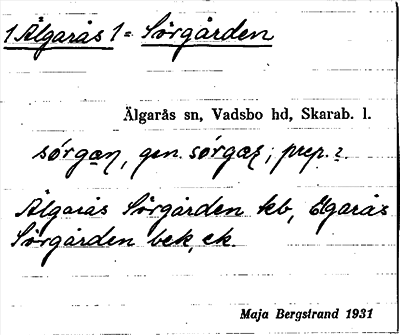 1 Älgarås 1 = Sörgården
Älgarås sn, Vadsbo hd, Skarab. l.
sǿrgan, gen. sǿrgaʒ; prep. ?.
Älgarås Sörgården kb, Elgarås
Sörgården bek, ek
Maja Bergstrand 1931